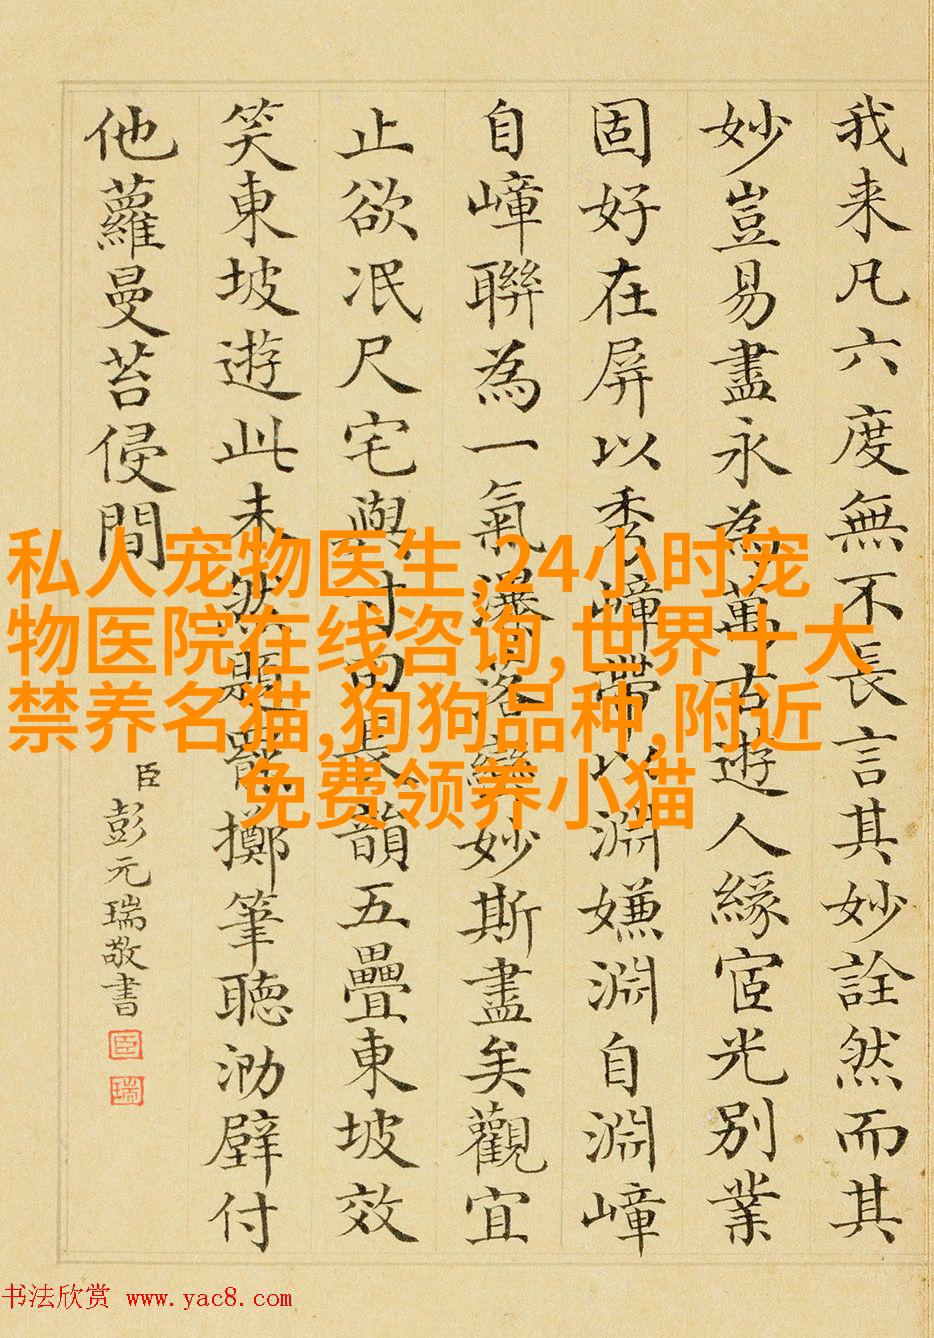 我来凡六度無不長言其妙詮然而其
妙豈易盡永為萬古遊人緣宧光別業
固好在屏以秀嶂帶以淵嫌淵自淵嶂
自嶂聯為一氣瀑落巒妙斯盡矣觀宜
止欲泯尺宅與寸田長韻五疊東坡效
笑東坡遊此未然題罷擲筆聽泐壁付
他蘿蔓苔侵間
臣彭元瑞敬書
臣
瑞
私人宠物医生,24小时宠
物医院在线咨询,世界十大
禁养名猫,狗狗品种,附近
免费领养小猫
书法欣赏 www.yac8.com